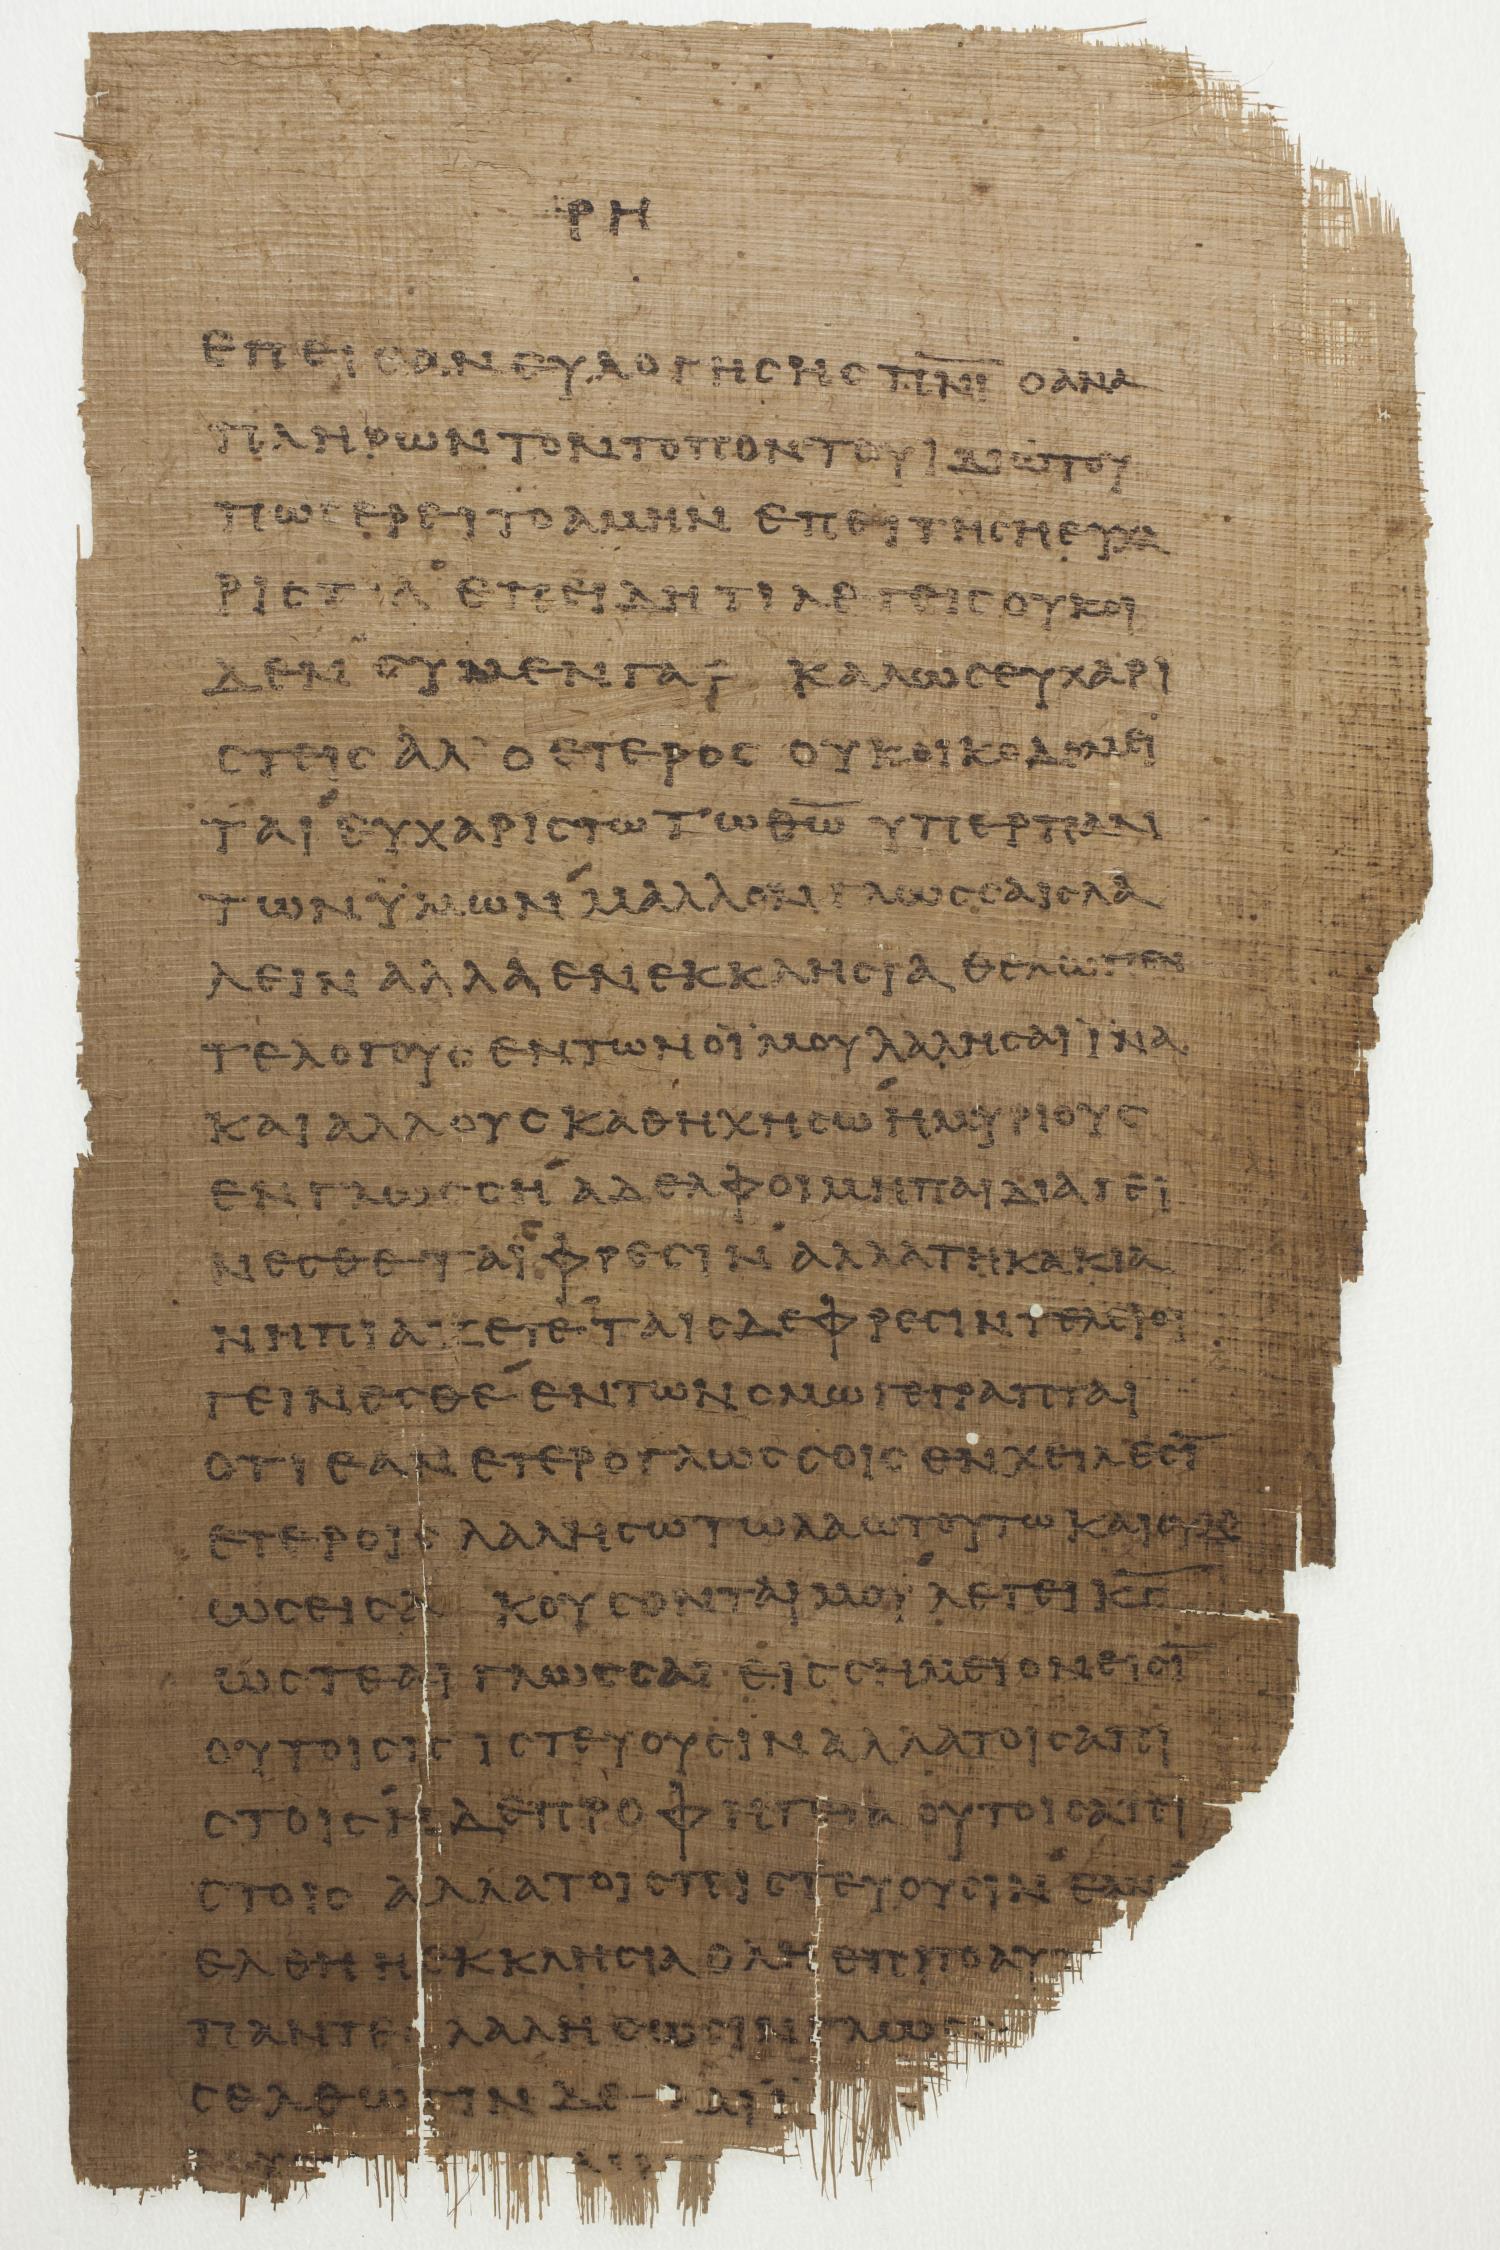 ΡΗ
ΕΠΕΙ ΕΑΝ ΕΥΛΟΓΗCΗC Π̅Ν̅Ι̅ Ο ΑΝΑ
ΠΛΗΡΩΝ ΤΟΝ ΤΟΠΟΝ ΤΟΥ ΙΔΙΩΤΟΥ
ΠΩC ΕΡΕΙ ΤΟ ΑΜΗΝ ΕΠΕΙ ΤΗ CΗ ΕΥΧΑ
ΡΙCΤΙΑ ΕΠΕΙΔΗ ΤΙ ΛΕΓΕΙC ΟΥΚ ΟΙ
ΔΕΝ CΥ ΜΕΝ ΓΑΡ ΚΑΛΩC ΕΥΧΑΡΙ
CΤΕΙC ΑΛ Ο ΕΤΕΡΟC ΟΥΚ ΟΙΚΟΔΟΜΕΙ
ΤΑΙ ΕΥΧΑΡΙCΤΩ ΤΩ Θ̅Ω̅ ΥΠΕΡ ΠΑΝ
ΤΩΝ ΫΜΩΝ ΜΑΛΛΟΝ ΓΛΩCCΑΙC ΛΑ
ΛΕΙΝ ΑΛΛΑ ΕΝ ΕΚΚΛΗCΙΑ ΘΕΛΩ ΠΕΝ
ΤΕ ΛΟΓΟΥC ΕΝ ΤΩ ΝΟΪ ΜΟΥ ΛΑΛΗCΑΙ ΪΝΑ
ΚΑΙ ΑΛΛΟΥC ΚΑΘΗΧΗCΩ Η ΜΥΡΙΟΥC
ΕΝ ΓΛΩCCΗ ΑΔΕΛΦΟΙ ΜΗ ΠΑΙΔΙΑ ΓΕΙ
ΝΕCΘΕ ΤΑΙC ΦΡΕCΙΝ ΑΛΛΑ ΤΗ ΚΑΚΙΑ
ΝΗΠΙΑΖΕΤΕ ΤΑΙC ΔΕ ΦΡΕCΙΝ ΤΕΛΕΙΟΙ
ΓΕΙΝΕCΘΕ ΕΝ ΤΩ ΝΟΜΩ ΓΕΓΡΑΠΤΑΙ
ΟΤΙ ΕΑΝ ΕΤΕΡΟΓΛΩCCΟΙC ΕΝ ΧΕΙΛΕCΙ̅
ΕΤΕΡΟΙC ΛΑΛΗCΩ ΤΩ ΛΑΩ ΤΟΥΤΩ ΚΑΙ ΟΥΔ
ΩC ΕΙCΑΚΟΥCΟΝΤΑΙ ΜΟΥ ΛΕΓΕΙ Κ̅C̅
ΩCΤΕ ΑΙ ΓΛΩCCΑΙ ΕΙC CΗΜΕΙΟΝ ΕΙCΙ̅
ΟΥ ΤΟΙC ΠΙCΤΕΥΟΥCΙΝ ΑΛΛΑ ΤΟΙC ΑΠΙ
CΤΟΙC Η ΔΕ ΠΡΟΦΗΤΕΙΑ ΟΥ ΤΟΙC ΑΠΙ
CΤΟΙC ΑΛΛΑ ΤΟΙC ΠΙCΤΕΥΟΥCΙΝ ΕΑΝ
ΕΛΘΗ Η ΕΚΚΛΗCΙΑ ΟΛΗ ΕΠΙ ΤΟ ΑΥ
ΠΑΝΤΕC ΛΑΛΗCΩCΙΝ ΓΛΩC
CΕΛΘΩCΙΝ ΔΕ